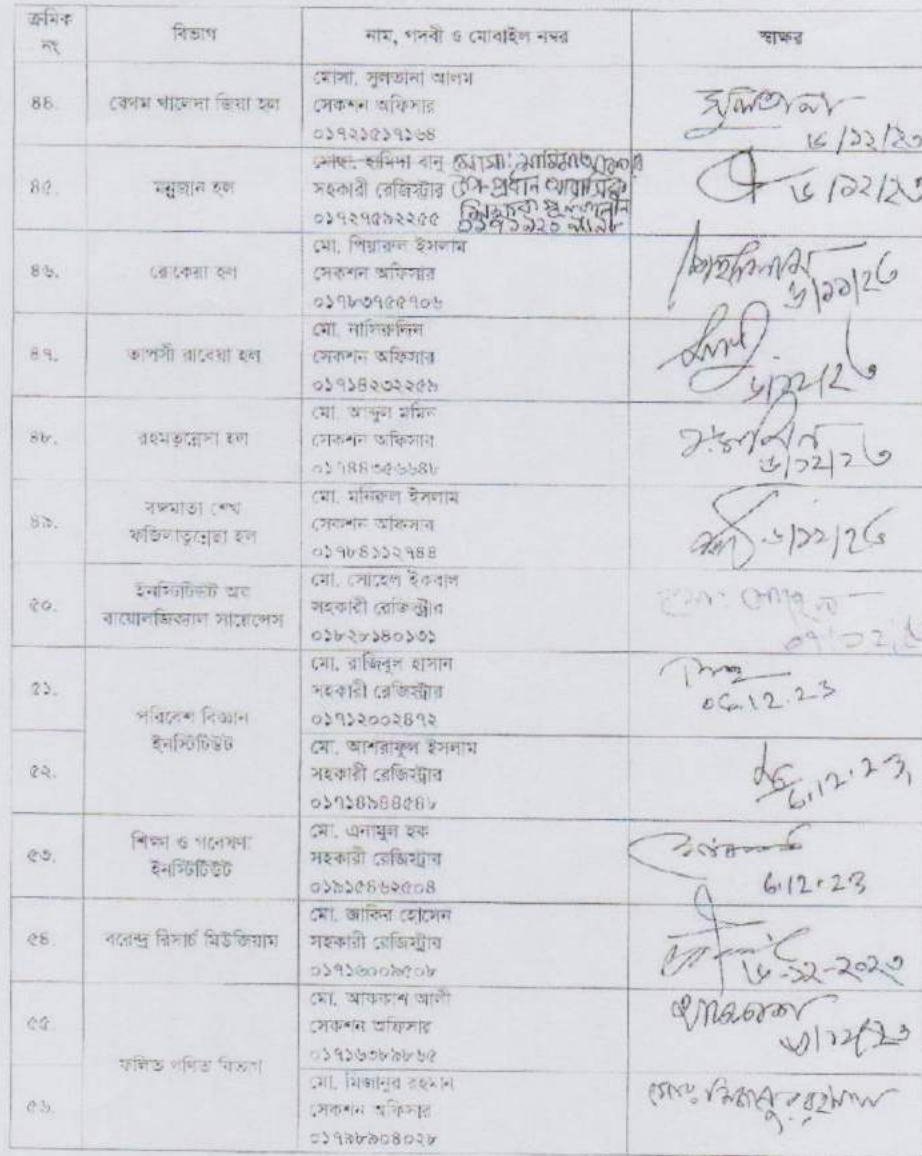 ক্রমিক নং
বিভাগ
নাম, পদবী ও মোবাইল নম্বর
স্বাক্ষর
৪৪.
বেগম খালেদা জিয়া হল
মোসা. সুলতানা আলম
সেকশন অফিসার
০১৭২১৫১৭১৬৪
সুলতানা
৬/১২/২৩
৪৫.
মন্নুজান হল
মোছা. হামিদা বানু মোসা:
সহকারী রেজিস্ট্রার উপ-প্রধান
০১৭২৭৫৯২২৫৫
৬/১২/২৩
৪৬.
রোকেয়া হল
মো. পিয়ারুল ইসলাম
সেকশন অফিসার
০১৭৮৩৭৫৫৭০৬
৬/১২/২৩
৪৭.
তাপসী রাবেয়া হল
মো. নাসিরুদ্দিন
সেকশন অফিসার
০১৭১৪২৩২২৫৯
৬/১২/২৩
৪৮.
রহমতুন্নেসা হল
মো. আব্দুল মমিন
সেকশন অফিসার
০১৭৪৪৩৫৬৬৪৮
৬/১২/২৩
৪৯.
বঙ্গমাতা শেখ
ফজিলাতুন্নেছা হল
মো. মনিরুল ইসলাম
সেকশন অফিসার
০১৭৮৪১১২৭৪৪
৬/১২/২৩
৫০.
ইনস্টিটিউট অব
বায়োলজিক্যাল সায়েন্সেস
মো. সোহেল ইকবাল
সহকারী রেজিস্ট্রার
০১৮২৮১৪০১৩১
৫১.
পরিবেশ বিজ্ঞান
ইনস্টিটিউট
মো. রাজিবুল হাসান
সহকারী রেজিস্ট্রার
০১৭১২০০২৪৭২
06.12.23
৫২.
মো. আশরাফুল ইসলাম
সহকারী রেজিস্ট্রার
০১৭১৪৯৪৪৫৪৮
6.12.23
৫৩.
শিক্ষা ও গবেষণা
ইনস্টিটিউট
মো. এনামুল হক
সহকারী রেজিস্ট্রার
০১৯১৫৪৬২৫০৪
6.12.23
৫৪.
বরেন্দ্র রিসার্চ মিউজিয়াম
মো. জাকির হোসেন
সহকারী রেজিস্ট্রার
০১৭১৬০০৯৫০৮
৬-১২-২০২৩
৫৫.
ফলিত গণিত বিভাগ
মো. আককাশ আলী
সেকশন অফিসার
০১৭১৬৩৮৯৮৬৫
৬/১২/২৩
৫৬.
মো. মিজানুর রহমান
সেকশন অফিসার
০১৭৯৮৯০৪০২৮
মোঃ মিজানুর রহমান